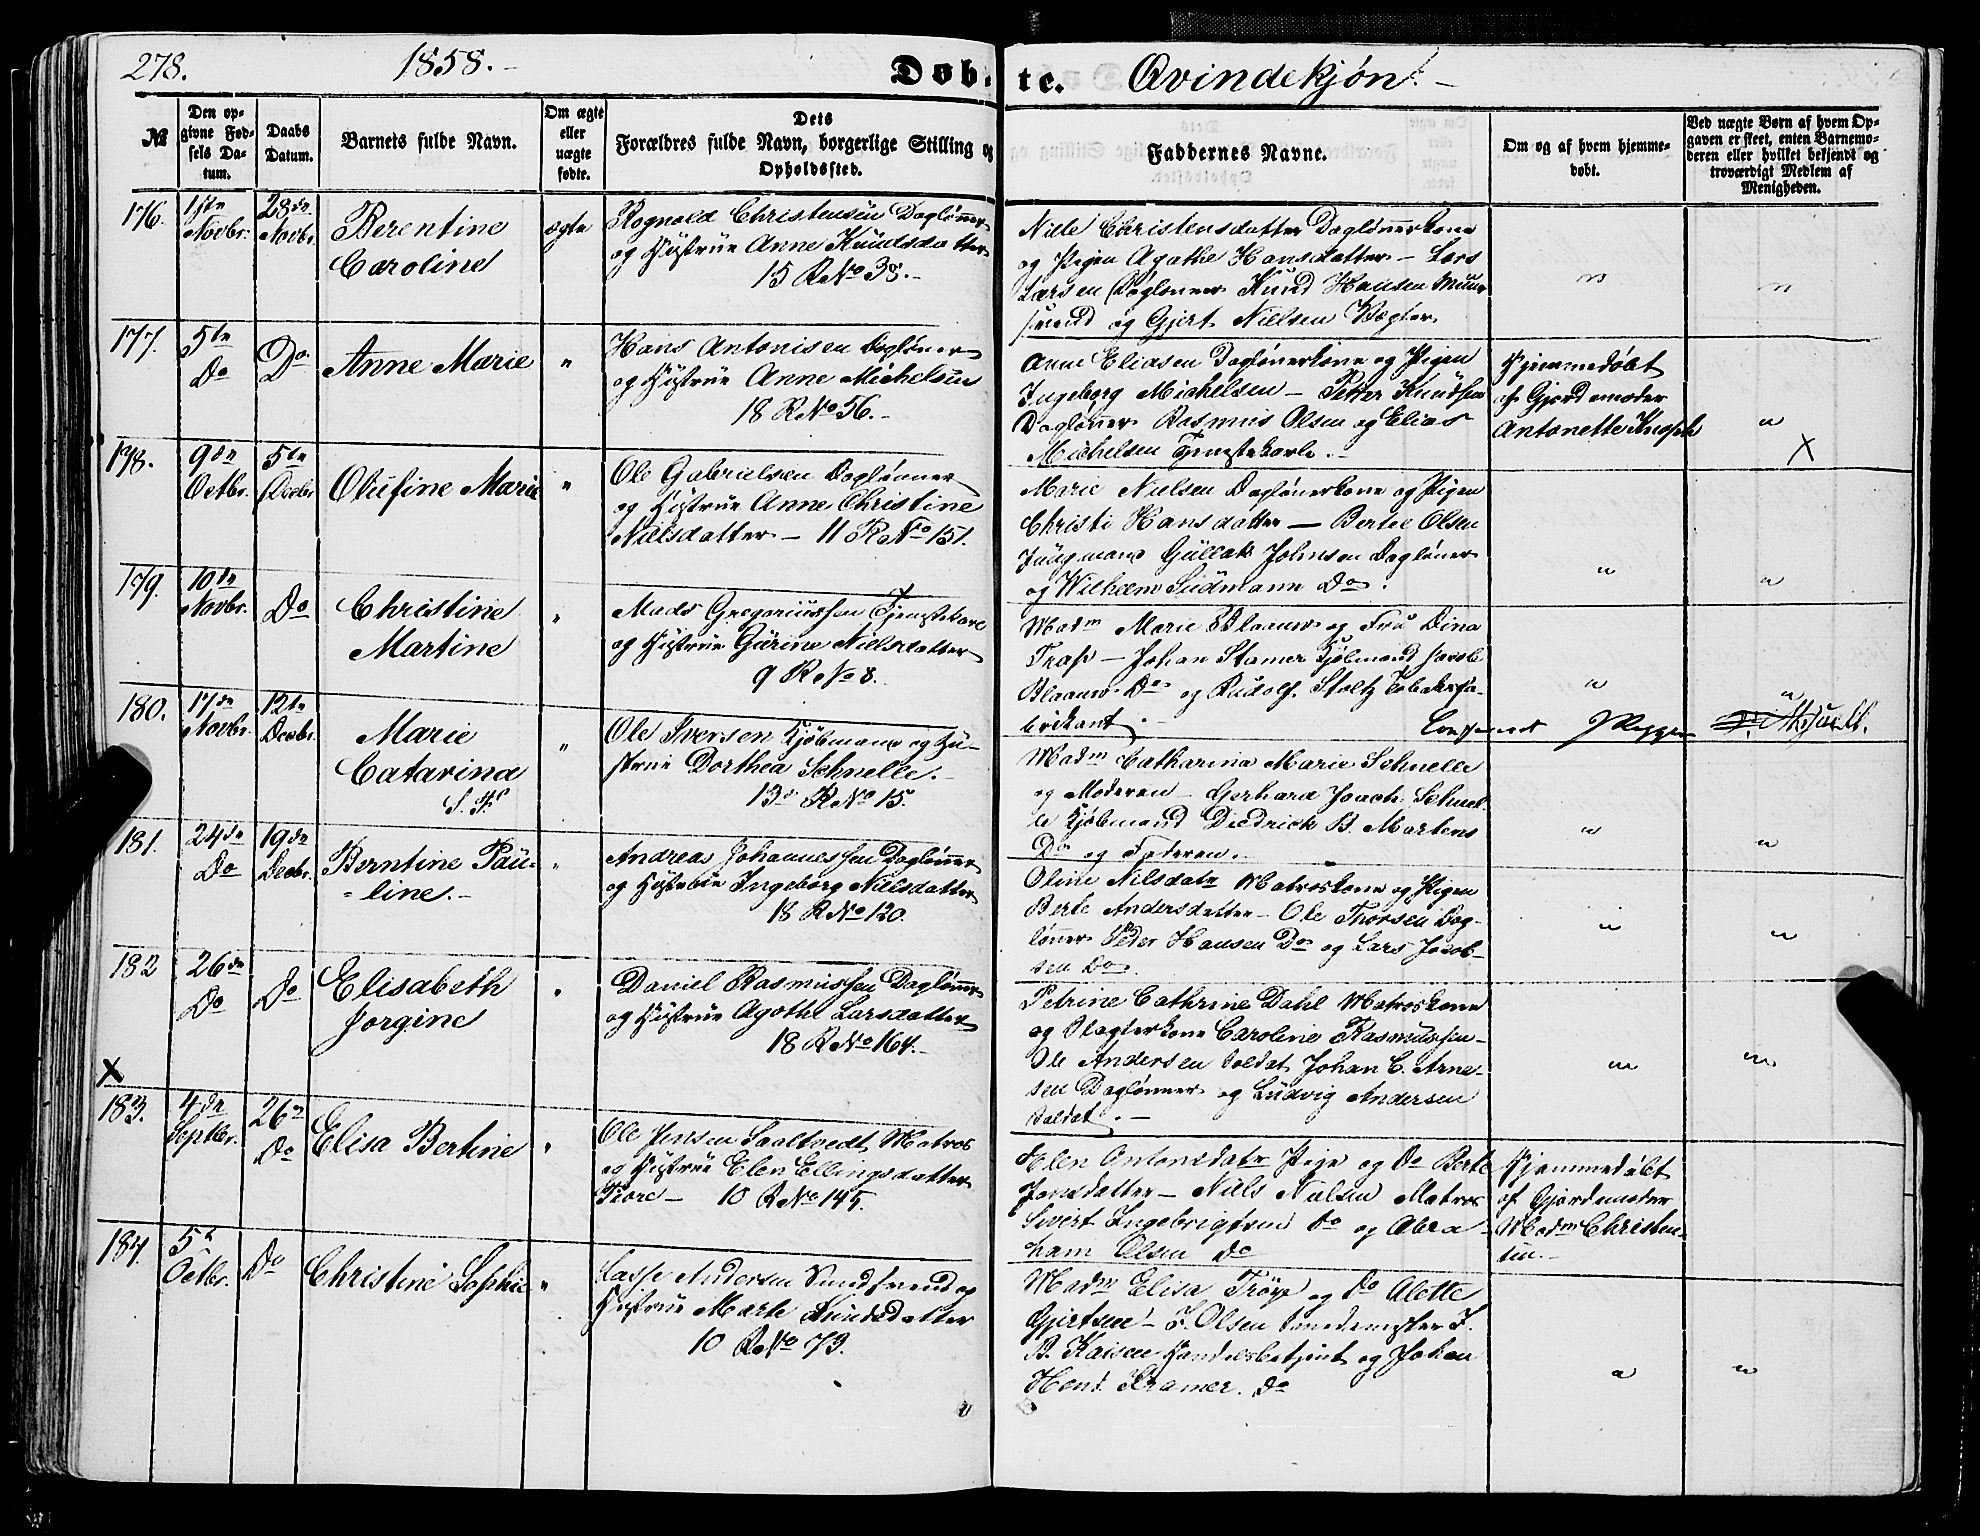 278.
1858.-
Døb-
te.
Qvindekjøn.-
№
Den op-
givne Fød-
sels Da-
tum.
Daabs
Datum.
Barnets fulde Navn.
Om ægte
eller
uægte
fødte.
Dets
Forældres fulde Navn, borgerlige Stilling og
Opholdssted.
Faddernes Navne.
Om og af hvem hjemme-
døbt.
Ved uægte Børn af hvem Op-
gaven er skeet, enten Barnemo-
deren eller hvilket bekjendt og
troværdigt Medlem af
Menigheden.
176.
1ste
Novbr.
28de
Novbr.
Berentine
Caroline
ægte
Rognald Christensen Dagløner
og Hustrue Anne Knudsdatter
15 R No 38.-
Nille Christensdatter Daglønerkone
og Pigen Agathe Hansdatter - Lars
Larsen Dagløner Knud Hansen Muur
svend og Gjert Nielsen Vægter
177.
5te
Do
Do
Anne Marie
"
Hans Antonisen Dagløner
og Hustrue Anne Michelsen
18 R No 56.-
Anne Eliasen Daglønerkone og Pigen
Ingeborg Michelsen - Petter Knudsen
Dagløner Rasmus Olsen og Elias
Michelsen Tjenestekarle.-
Hjemmedøbt
af Gjordemoder
Antonette Knoph
"
X
178.
9de
Octbr.
5te
Decbr
Olufine Marie
"
Ole Gabrielsen Dagløner
og Hustrue Anne Christine
Nielsdatter - 11 R No 151.
Marie Nielsen Daglønerkone og Pigen
Christi Hansdatter - Bertel Olsen
Jungmand Gullak Johnsen Dagløner
og Wilhelm Sudmann Do.
"
"
179.
10de
Novbr.
Do
Christine
Martine
"
Mads Gregoriussen Tjenestekarl
og Hustrue Gurine Nielsdatter
9 R No 8.
Madm Marie Blaauw og Fru Dina
Trap - Johan Stamer Kjøbmand Jacob
Blaauw Do og Rudolf Stoltz Tobaksfa-
brikant.
"
"
180.
17de
Novbr.
12te
Decbr.
Marie
Catarina
"
Ole Iversen Kjøbmand og Hu-
strue Dorthea Schnelle.-
13 R No 15.
Madm Catharina Marie Schnelle
og Moderen - Gerhard Joach. Schnel-
le Kjøbmand Diedrick B. Martens
Do og Faderen.
"
"
181.
24de
Do
19de
Decbr.
Berntine Pau-
-line.-
"
Andreas Johannessen Dagløner
og Hustrue Ingeborg Nielsdatter
18 R No 120.
Oline Nilsdatr Matroskone og Pigen
Berte Andersdatter - Ole Thorsen Dag-
løner Peder Hansen Do og Lars Jacob-
sen Do.
"
"
182
26de
Do
Do
Elisabeth
Jorgine
"
Daniel Rasmussen Dagløner
og Hustrue Agathe Larsdatter
18 R No 164.-
Petrine Cathrine Dahl Matroskone
og Slagterkone Caroline Rasmussen-
Ole Andersen Soldat Johan C. Arne-
sen Dagløner og Ludvig Andersen
Soldat.-
"
"
X
183.
4de
Septbr.
26
Do
Elisa Bertine
"
Ole Jensen Saaltvedt Matros
og Hustrue Elen Ellingsdatter
10 R No 145.
Elen Antonsdatr Pige og Do Berte
Jonsdatter - Niels Nielsen Matros
Sivert Ingebrigtsen Do og Abra-
ham Olsen Do
Hjemmedøbt
af Gjordemoder
Madm Christen-
sen.-
184.
5t
Octbr.
Do
Christine Sophie
"
Lasse Andersen Smedsvend og
Hustrue Marte Knudsdatter
10 R No 73.
Madm Elisa Trøye og Do Alette
Gjertsen - J. Olsen Smedemester J.
B. Kaisen Handelsbetjent og Johan
Hend. Kramer. Do
"
"